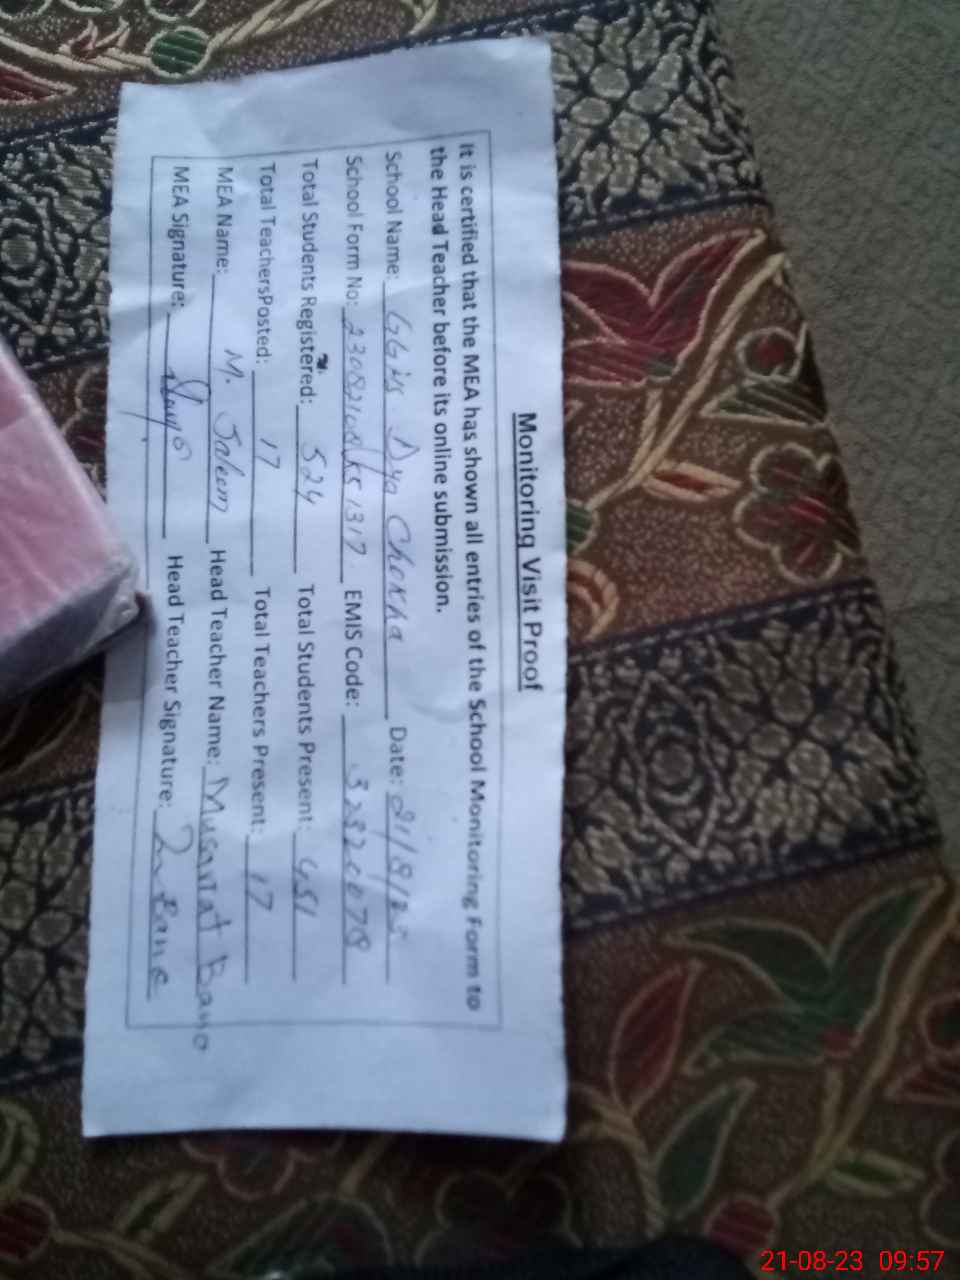 Monitoring Visit Proof
It is certified that the MEA has shown all entries of the School Monitoring Form to
the Head Teacher before its online submission.
School Name: Dya Chokha Date: 21/8/23
School Form No: EMIS Code:
Total Students Registered: 524 Total Students Present: 451
Total TeachersPosted: 17 Total Teachers Present: 17
MEA Name: M. Saleem Head Teacher Name: Musarrat Bano
MEA Signature: Head Teacher Signature:
21-08-23 09:57